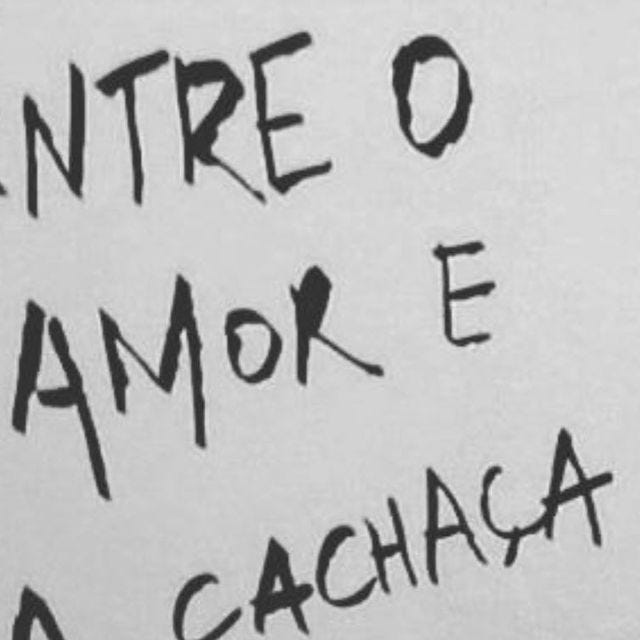 ENTRE O
AMOR E
A CACHAÇA